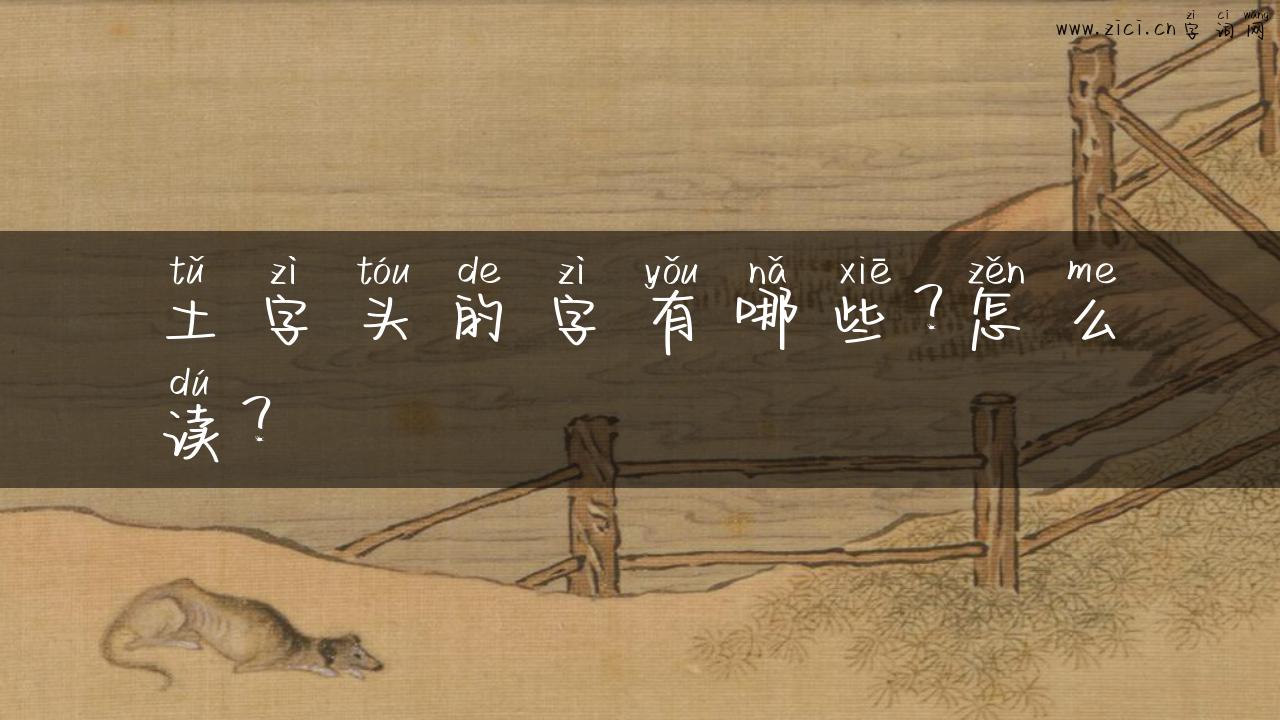 zì cí wǎng
www.zici.cn字词网
tǔ zì tóu de zì yǒu nǎ xiē zěn me
土字头的字有哪些？怎么
dú
读？